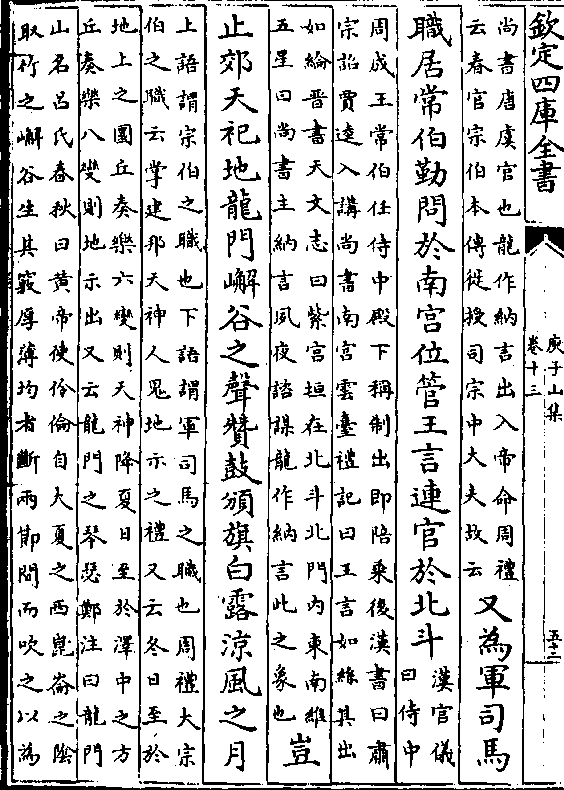 欽定四庫全書
庾子山集
卷十三
五十三
尚書唐虞官也龍作納言出入帝命周禮
云春官宗伯本傳從授司宗中大夫故云
又為軍司馬
職居常伯勤問於南宮位管王言連官於北斗
漢官儀
曰侍中
周成王常伯任侍中殿下稱制出即陪乘後漢書曰肅
宗詔賈逵入講尚書南宮雲臺禮記曰王言如絲其出
如綸晉書天文志曰紫宮垣在北斗北門內東南維
五星曰尚書主納言夙夜諮謀龍作納言此之象也
豈
止郊天祀地龍門嶰谷之聲贊鼓頒旗白露涼風之月
上語謂宗伯之職也下語謂軍司馬之職也周禮大宗
伯之職云掌建邦天神人鬼地示之禮又云冬日至於
地上之圜丘奏樂六變則天神降夏日至於澤中之方
丘奏樂八變則地示出又云龍門之琴瑟鄭注曰龍門
山名呂氏春秋曰黃帝使伶倫自大夏之西崑崙之陰
取竹之嶰谷生其竅厚薄均者斷兩節間而吹之以為